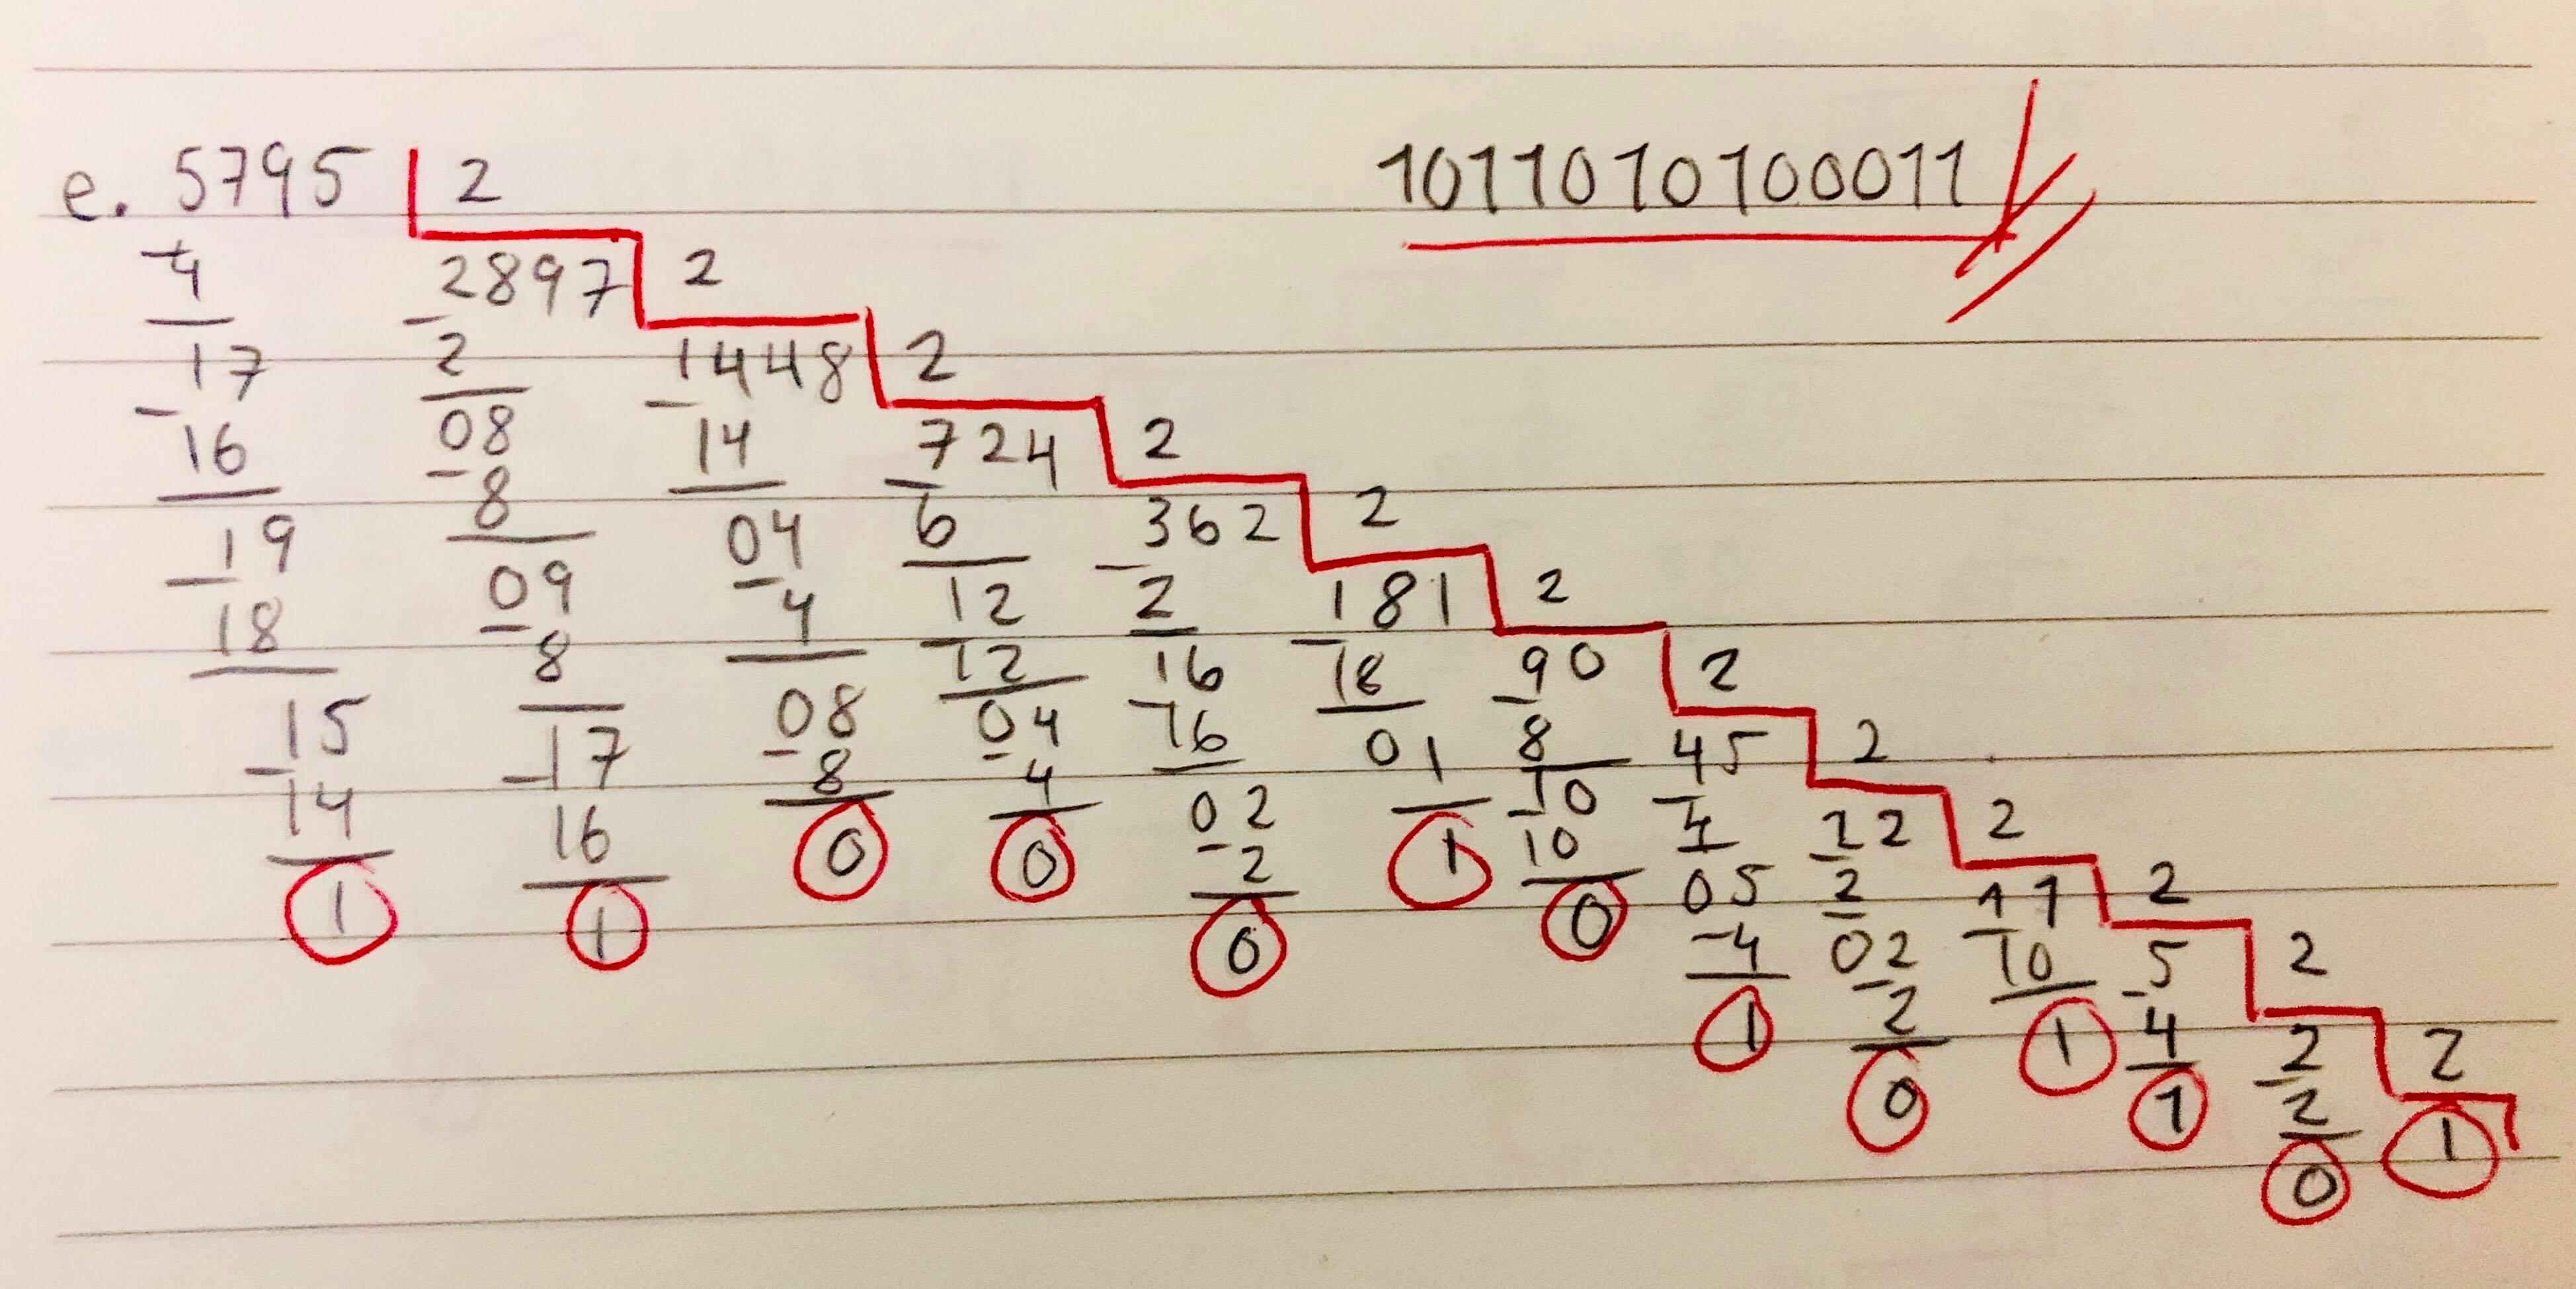 e. 5795 2
1011010100011
-4
17
-16
19
-18
15
-14
1
2897 2
-2
08
-8
09
-8
17
-16
1
1448 2
-14
04
-4
08
-8
0
724 2
-6
12
-12
04
-4
0
362 2
-2
16
-16
02
-2
0
181 2
-18
01
1
90 2
-8
10
-10
0
45 2
-4
05
-4
1
22 2
-2
02
-2
0
11 2
-10
1
5 2
-4
1
2 2
-2
0
1